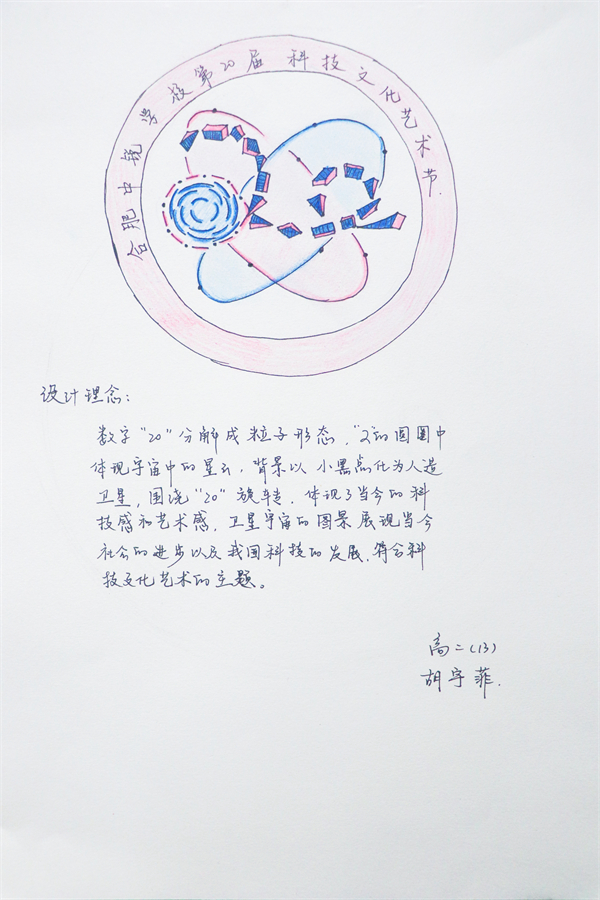 合肥中锐学校第20届 科技文化艺术节.
设计理念:
数字“20”分解成粒子形态,“2”的圆圈中
体现宇宙中的星云,背景以小黑点化为人造
卫星,围绕“20”旋转.体现了当今的科
技感和艺术感.卫星宇宙的图景展现当今
社会的进步以及我国科技的发展.符合科
技文化艺术的主题。
高二(13)
胡宇菲.